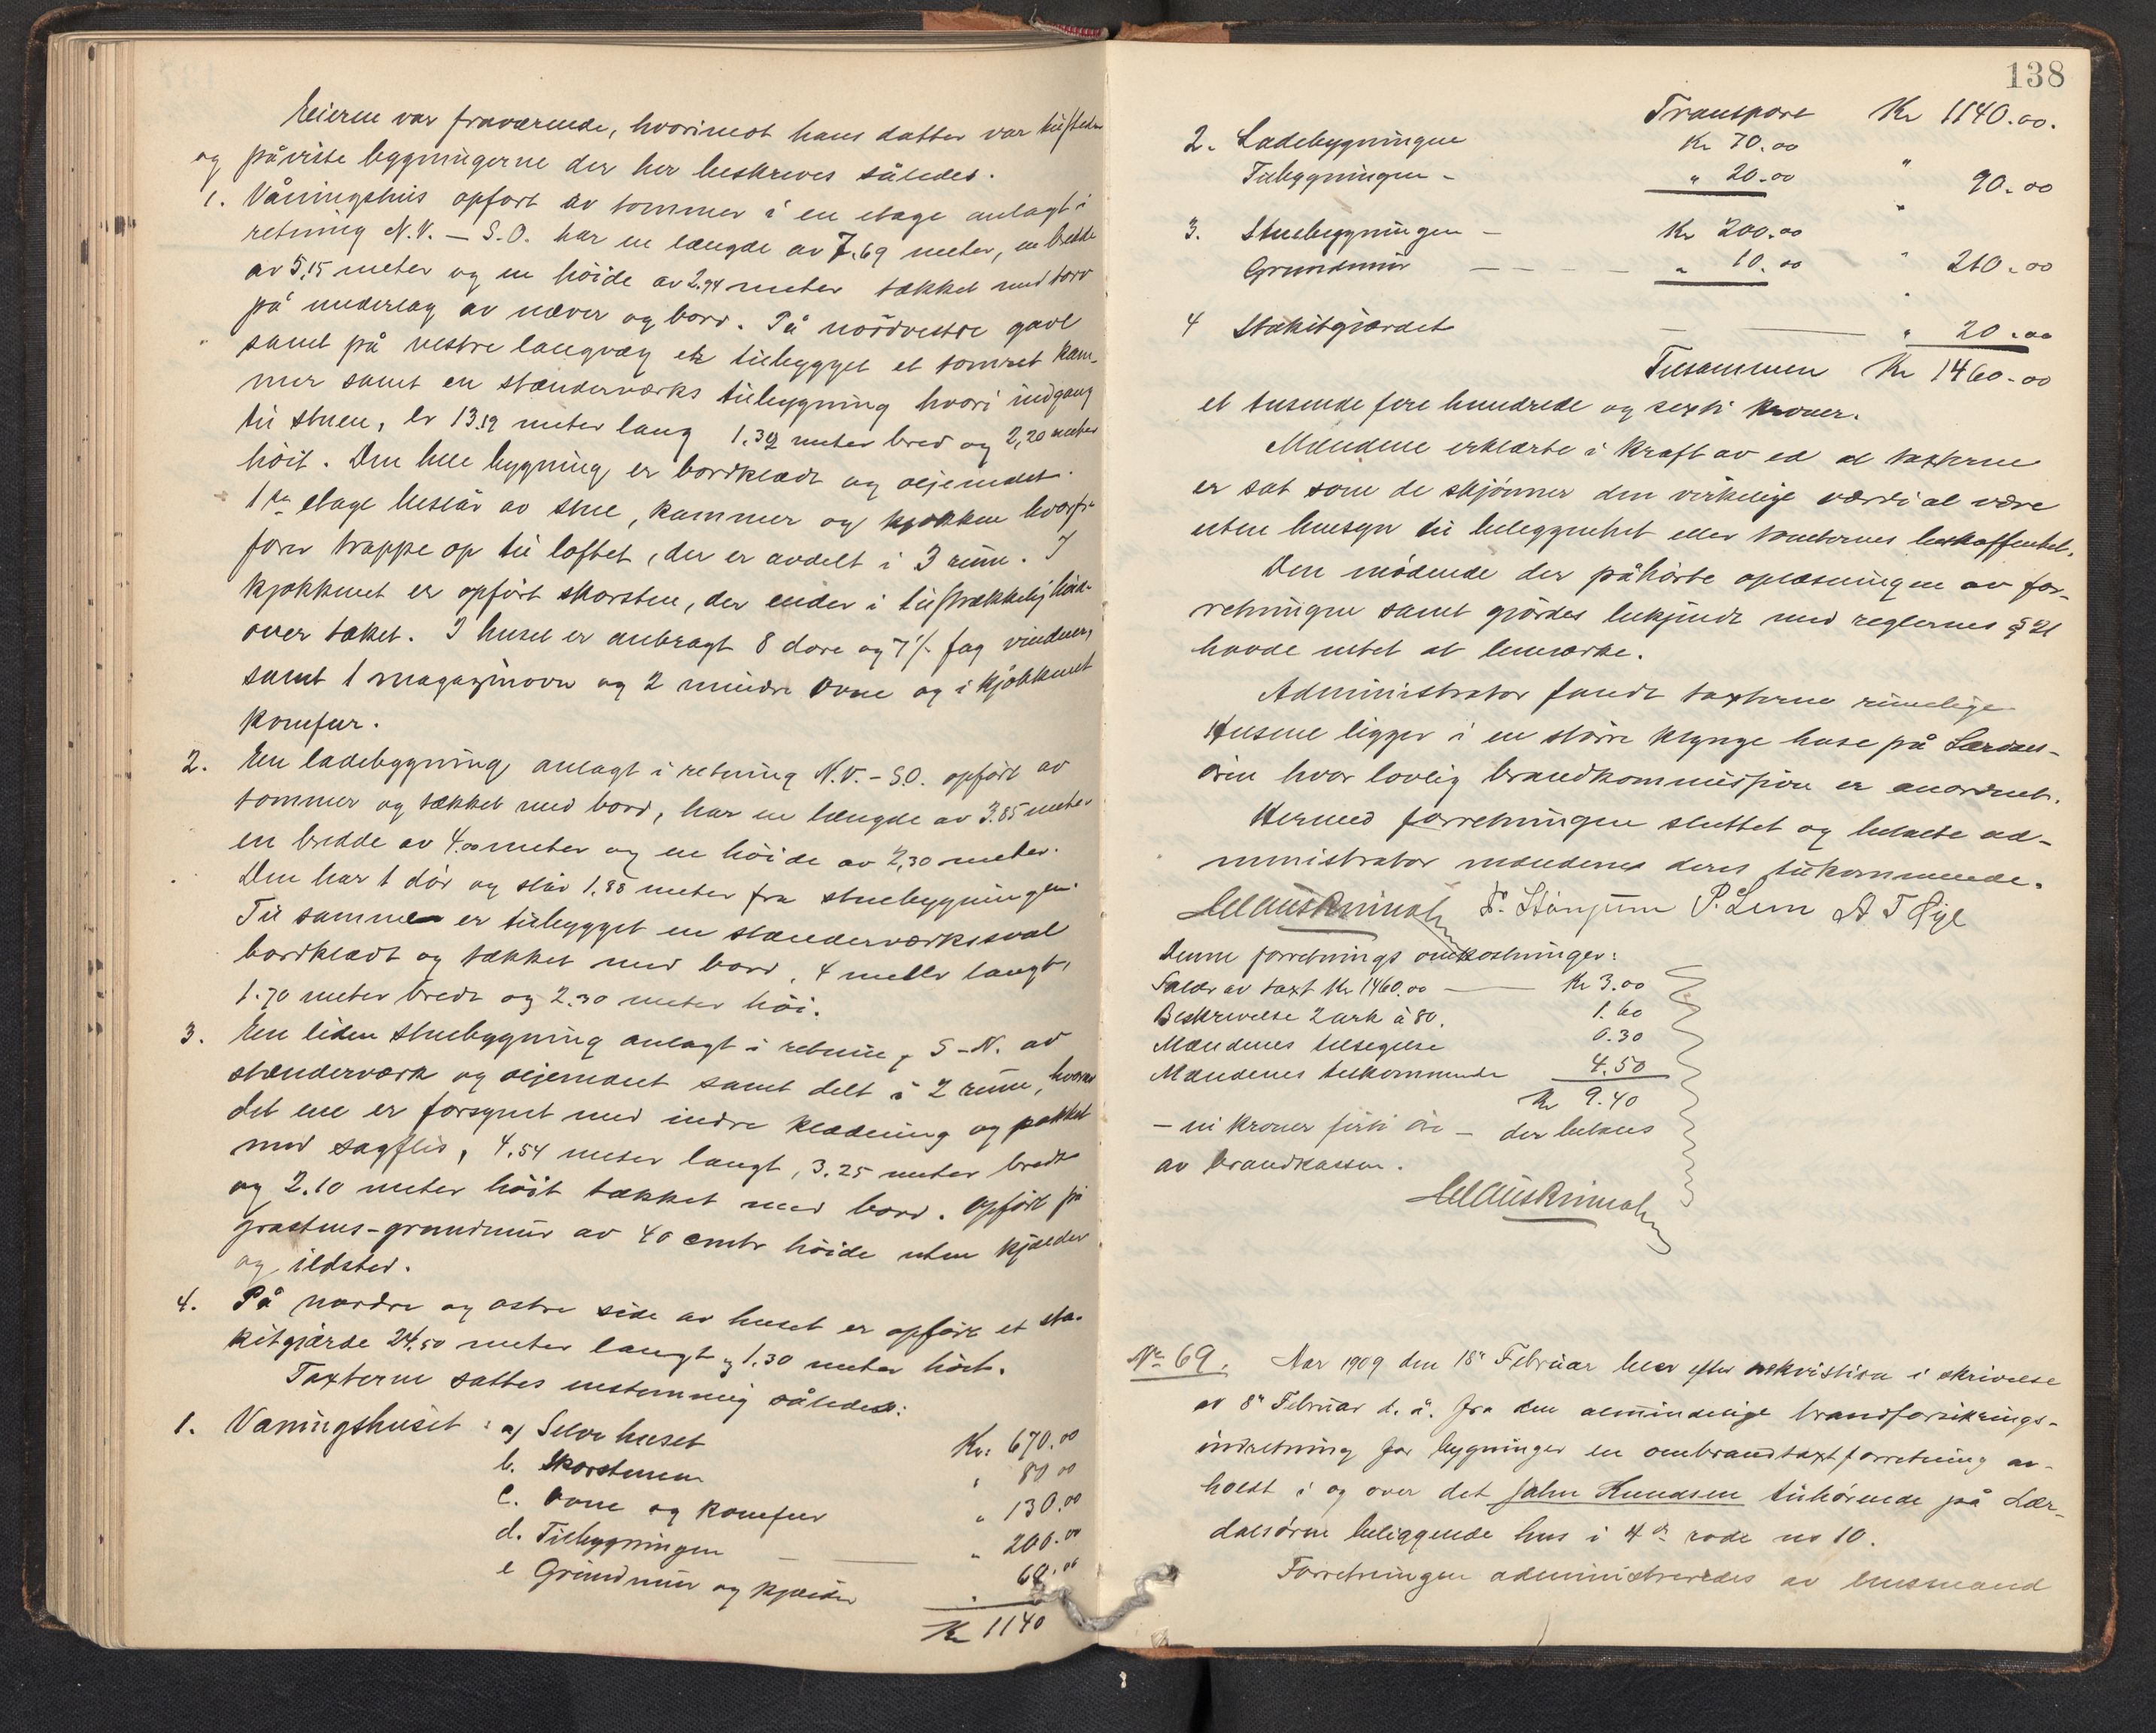 Eieren var fraværende, hvorimot hans datter var tilstede
og påviste bygningerne der her beskrives således.
1. Våningshus opført av tømmer i en etage anlagt i
retning N.V. – S.O. har en længde av 7.69 meter, en bredde
av 5,15 meter og en höide av 2.94 meter tækket med torv
på underlag av næver og bord. På nordvestre gavl
samt på vestre langvæg er tilbygget et tømret kam-
mer samt en stænderværks tilbygning hvori indgang
til stuen, er 13.19 meter lang 1.32 meter bred og 2,20 meter
höit. Den hele bygning er bordklædt og oljemalet.
1ste etage består av stue, kammer og kjøkken hvorfra
fører trappe op til loftet, der er avdelt i 3 rum. I
kjøkkenet er opført skorsten, der ender i tilstrækkelig höide
over taket. I huset er anbragt 8 døre og 7½ fag vinduer,
samt 1 magazinovn og 2 mindre ovne og i kjøkkenet
komfur.
2. En ladebygning anlagt i retning N.V. – S.O. opført av
tømmer og tækket med bord, har en længde av 3.85 meter
en bredde av 4.00 meter og en höide av 2,30 meter.
Den har 1 dör og står 1.88 meter fra stuebygningen.
Til samme er tilbygget en stænderværkssval
bordklædt og tækket med bord, 4 meter langt,
1.70 meter bredt og 2.30 meter höi.
3. En liden stuebygning anlagt i retning S–N. av
stænderværk og oljemalet samt delt i 2 rum, hvorav
det ene er forsynet med indre klædning og pakket
med sagflis, 4.54 meter langt, 3.25 meter bredt
og 2.10 meter höit tækket med bord. Opført på
gråstens-grundmur av 40 cmtr höide uten kjælder
og ildsted.
4. På nordre og østre side av huset er opført et sta-
kitgjærde 24.50 meter langt og 1.30 meter höit.
Taxterne sattes enstemmig således:
1. Vaningshuset: a) Selve huset Kr: 670.00
b. Skorstenen " 80 00
c. Ovne og komfur " 130.00
d. Tilbygningen – — " 200.00
e Grundmur og kjælder " 60.00
Kr 1140
138
Transport Kr 1140.00.
2. Ladebygningen Kr 70.00
Tilbygningen – " 20.00 " 90.00
3. Stuebygningen – Kr 200.00
Grundmur – – – – " 10.00 " 210.00
4 Stakitgjærdet – — " 20.00
Tilsammen Kr 1460.00
et tusende fire hundrede og sexti kroner.
Mændene erklærte i kraft av ed at taxterne
er sat som de skjønner den virkelige værdi at være
uten hensyn til beleggenhet eller tomternes beskaffenhet.
Den mødende der påhørte oplæsningen av for-
retningen samt gjördes bekjendt med reglernes § 21
havde intet at bemerke.
Administrator fandt taxterne rimelige.
Husene ligger i en större klynge huse på Lærdals-
ören hvor lovlig brandkommission er anordnet.
Hermed forretningen sluttet og betalte ad-
ministrator mændenes deres tilkommende.
P. Lem A T Øye
Denne forretnings omkostninger:
Salær av taxt Kr 1460.00 — Kr 3.00
Beskrivelse 2 ark à 80. 1.60
Mændenes tilsigelse 0.30
Mændenes tilkommende 4.50
Kr 9.40
– ni kroner firti öre – der betales
av brandkassen.
No 69. Aar 1909 den 18de Februar blev efter rekvisition i skrivelse
av 8de Februar d. å. fra den almindelige brandforsikrings-
indretning for bygninger en ombrandtaxtforretning av-
holdt i og over det John Knudsen tilhörende på Lær-
dalsören beliggende hus i 4de rode no 10.
Forretningen administreredes av lensmand